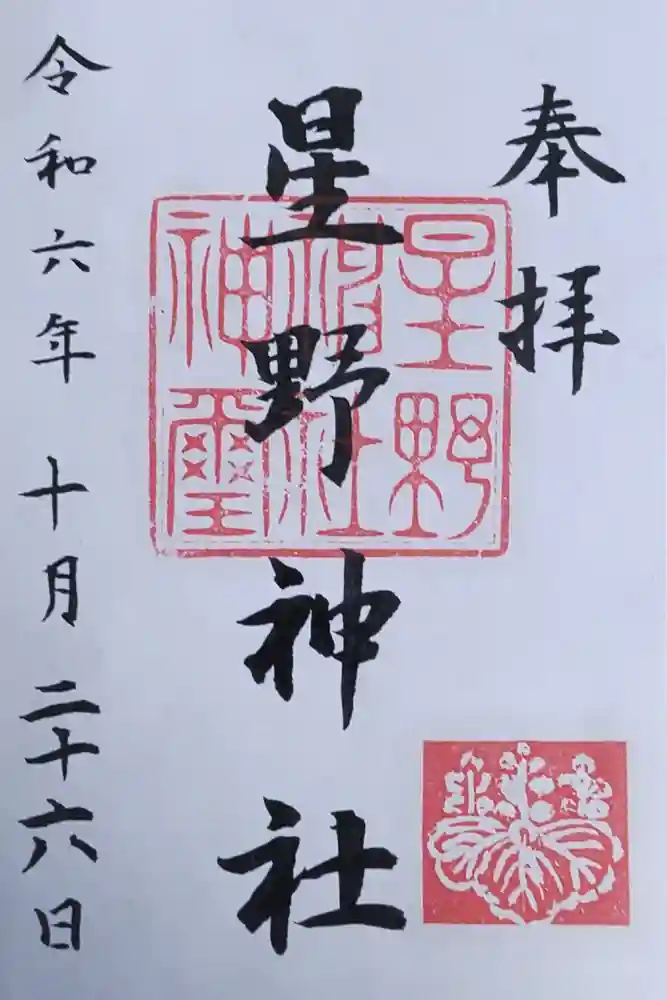 奉拝
星野神社
星野神社神璽
令和六年十月二十六日